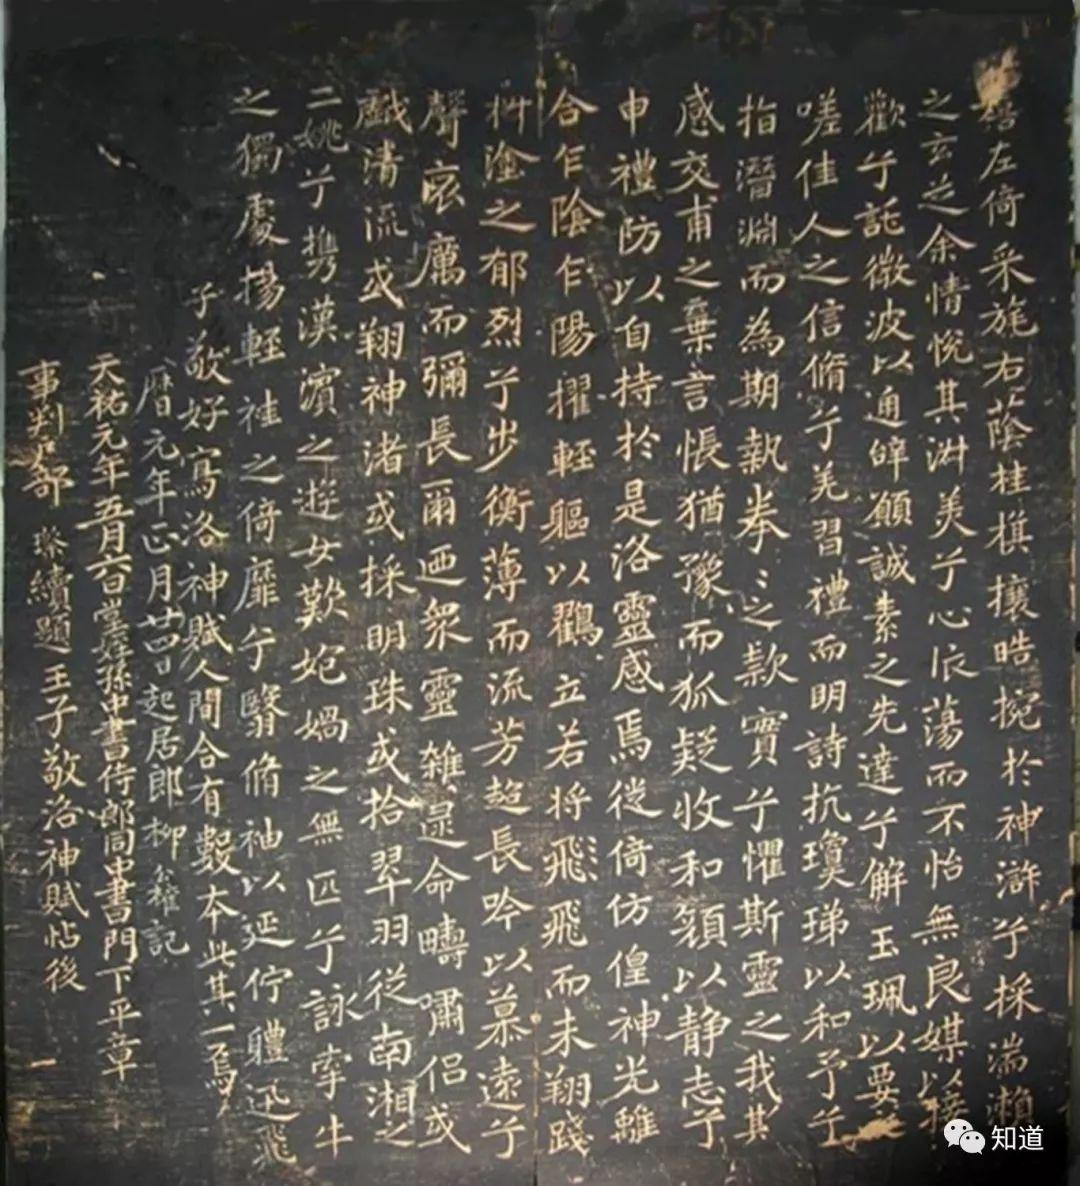 左倚采旄右蔭桂棋攘晧捥於神滸兮採湍瀨
之玄芝余情悅其淋美兮心依蕩而不怡無良媒以接
歡兮託微波以通辝願誠素之先達兮解玉珮以要
嗟佳人之信脩兮羌習禮而明詩抗瓊珶以和予兮
指潛淵而為期執拳〻之款實兮懼斯靈之我其
感交甫之棄言悵猶豫而狐疑收和顏以静志兮
申禮防以自持於是洛靈感焉徙倚仿偟神光離
合乍陰乍陽擢輕軀以鸖立若將飛飛而未翔踐
椒塗之郁烈兮步衡薄而流芳超長吟以慕遠兮
聲哀厲而彌長爾迺衆靈雜遝命疇嘯侶或
戲清流或翔神渚或採明珠或拾翠羽從南湘之
二姚兮攜漢濱之遊女歎媧之無匹兮詠牽牛
之獨處揚輕袿之倚靡兮翳脩袖以延佇軆迅飛
子敬好寫洛神賦人間合有數本此其一焉
曆元年正月廿四日起居郎柳公權記
天祐元年五月六日堂姪孫中書侍郎同中書門下平章
事判戶部 璨續題王子敬洛神賦帖後
知道